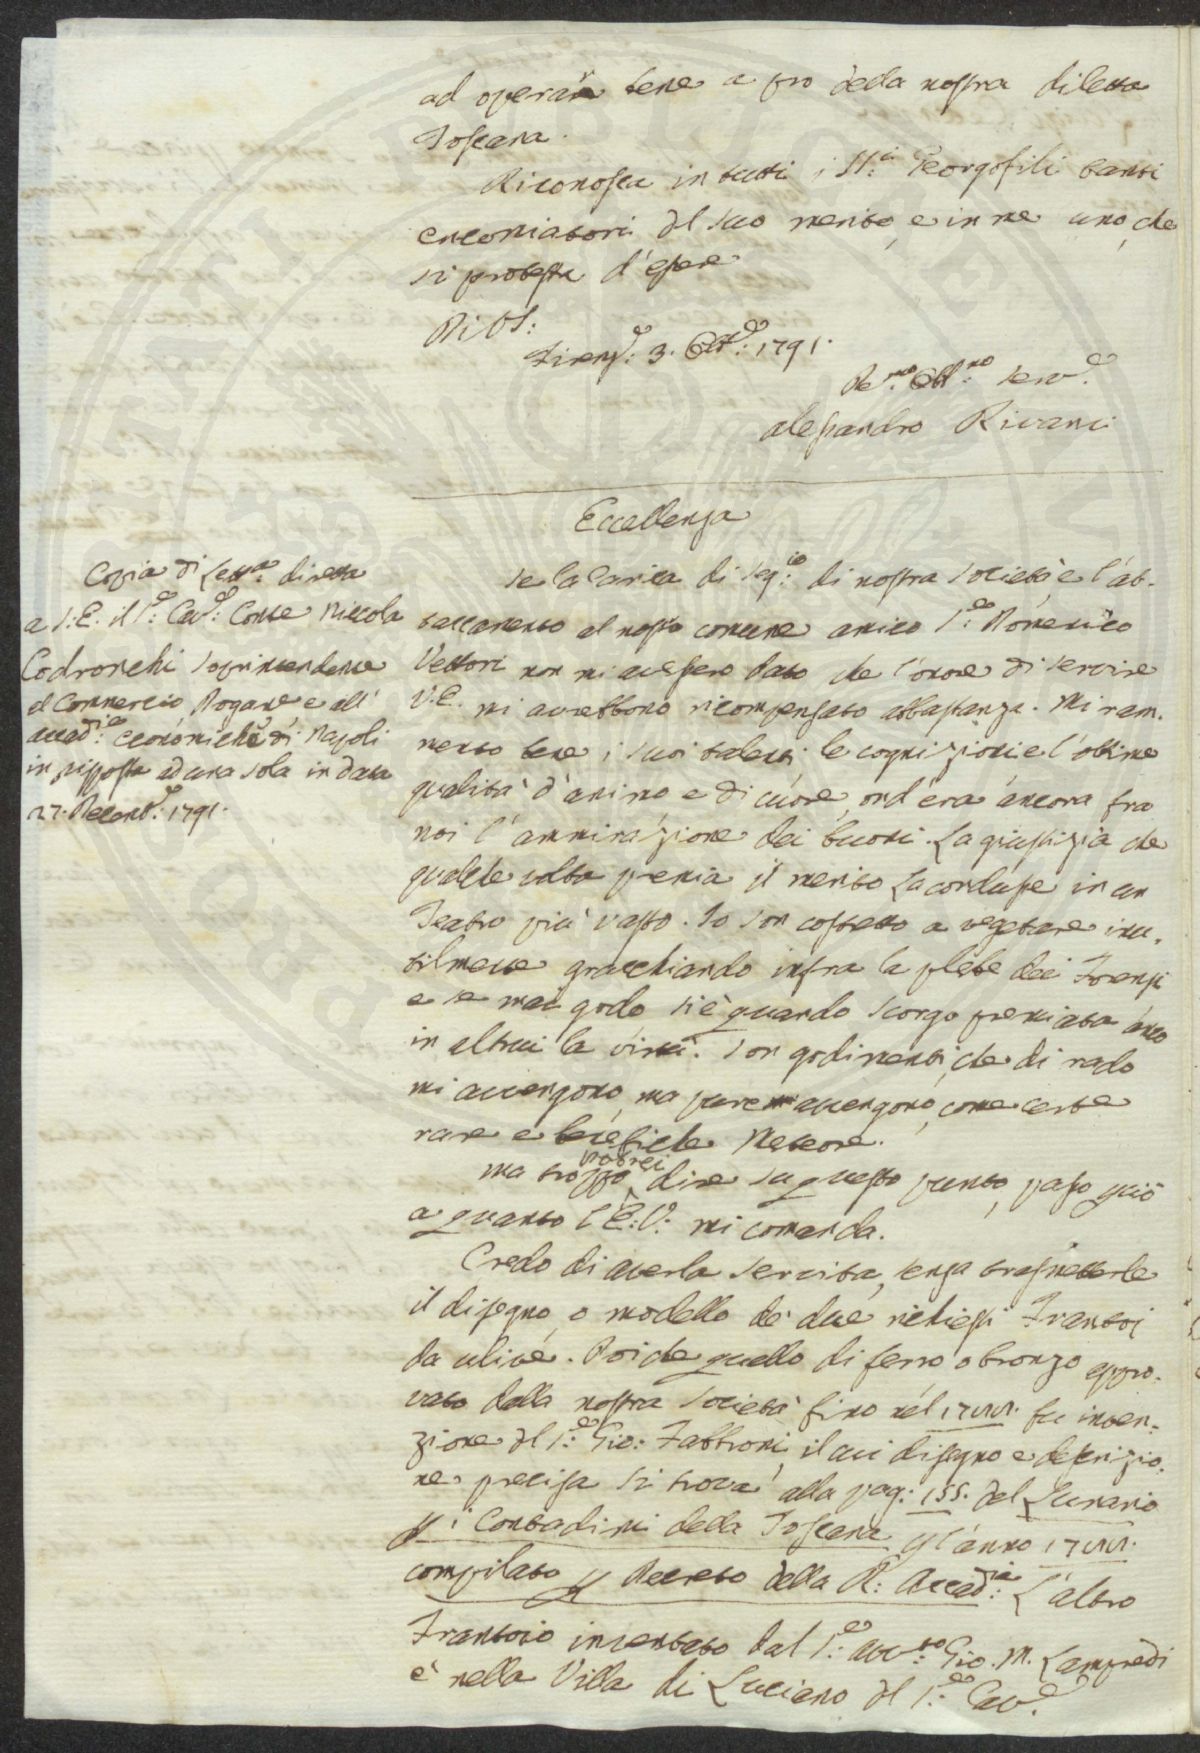 ad operar bene a pro della nostra diletta
Toscana.
Riconosca in tutti i SS.ri Georgofili tanti
encomiatori del suo merito, e in me uno, che
si protesta d'essere
Di VS:
Firenze: 3. Ott.e: 1791.
De.mo Obbl.mo serv.e
Alessandro Rivani
Eccellenza
Copia di Lett.a: diretta
a S: E. il S.e: Cav.e: Conte Niccola
Codronchi Soprintendente
al Commercio Dogane e all'
Accad.ie: economiche di Napoli
in risposta ad una sola in data
27. Decemb.e: 1791.
Se la Carica di Seg.rio: di nostra Società e l'at-
taccamento al nostro comune amico S.re Domenico
Vettori non mi avessero dato che l'onore di servire
V.E. mi avrebbono ricompensato abbastanza. Mi ram-
mento bene i suoi talenti le cognizioni e l'ottime
qualità d'animo e di cuore, ond'era ancora fra
noi l'ammirazione dei buoni. La giustizia che
qualche volta premia il merito La condusse in un
Teatro più vasto. Io son costretto a vegetare inu-
tilmente gracchiando infra la plebe dei Forensi
e se mai godo si è quando scorgo premiata anco
in altrui la virtù. Son godimenti, che di rado
mi avvengono, ma pure avvengono, come certe
rare e benefiche Meteore.
Ma troppo potrei dire su questo punto, passo quì
a quanto l'E: V: mi comanda.
Credo di averla servita, senza trasmetterle
il disegno, o modello de' due richiesti Frantoi
da ulive. Poiche quello di ferro, o bronzo appro-
vato dalla nostra Società fino nel 1788. fu inven-
zione del S.re: Gio: Fabbroni, il cui disegno e descrizio-
ne precisa si trova alla pag: 155. del Lunario
p i Contadini della Toscana p l'anno 1788.
compilato p Decreto della R: Accad.ia: L'altro
Frantoio inventato dal S.re: Avv.to: Gio. M. Lampredi
è nella Villa di Luciano del S.re: Cav.e